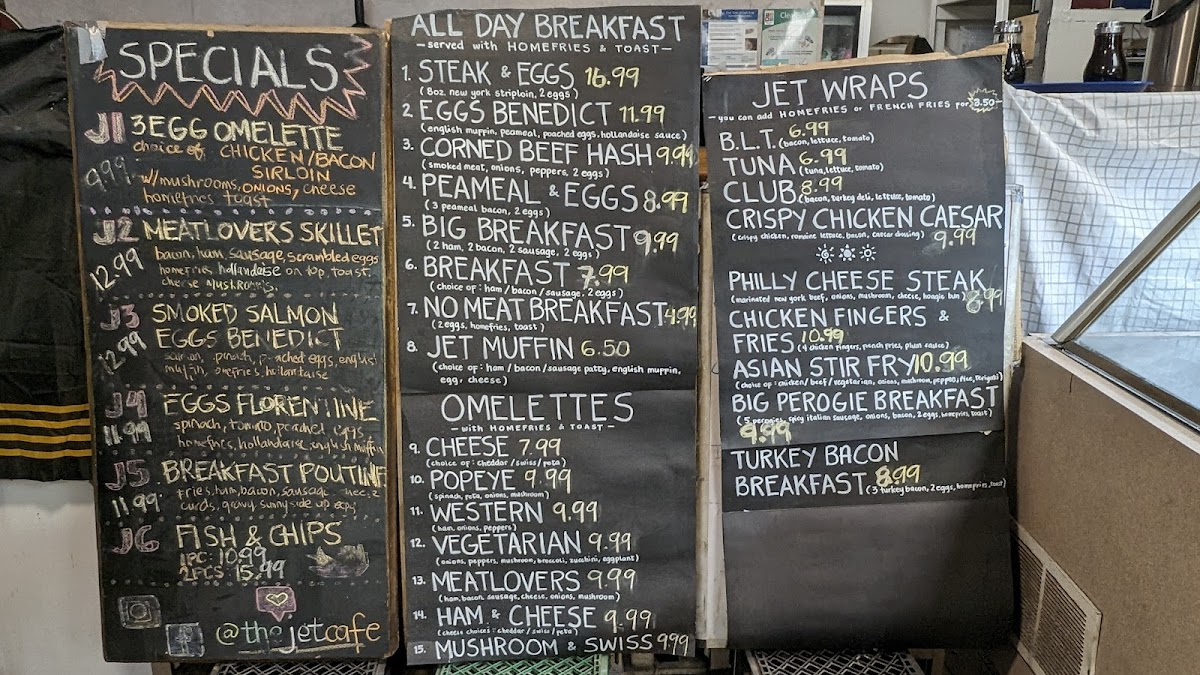 SPECIALS
J1 3 EGG OMELETTE
choice of: CHICKEN/BACON
SIRLOIN
9.99
w/mushrooms, ONIONS, cheese
homefries toast
J2 MEATLOVERS SKILLET
12.99
bacon, ham, sausage, scrambled eggs
homefries, hollandaise on top, toast.
cheese mushrooms.
J3 SMOKED SALMON
EGGS BENEDICT
12.99
poached eggs, english
muffin,
J4 EGGS FLORENTINE
11.99
spinach, tomato, poached eggs
homefries, hollandaise, english muffin
J5 BREAKFAST POUTINE
11.99
fries, ham, bacon, sausage
curds, gravy, sunny side up
J6 FISH & CHIPS
1PC: 10.99
2PCS 15.99
@thejetcafe
ALL DAY BREAKFAST
—served with HOMEFRIES & TOAST—
1. STEAK & EGGS 16.99
(8oz. new york striploin, 2 eggs)
2. EGGS BENEDICT 11.99
(english muffin, peameal, poached eggs, hollandaise sauce)
3. CORNED BEEF HASH 9.99
(smoked meat, onions, peppers, 2 eggs)
4. PEAMEAL & EGGS 8.99
(3 peameal bacon, 2 eggs)
5. BIG BREAKFAST 9.99
(2 ham, 2 bacon, 2 sausage, 2 eggs)
6. BREAKFAST 7.99
(choice of: ham/bacon/sausage, 2 eggs)
7. NO MEAT BREAKFAST 4.99
(2 eggs, homefries, toast)
8. JET MUFFIN 6.50
(choice of: ham/bacon/sausage patty, english muffin,
egg, cheese)
OMELETTES
—with HOMEFRIES & TOAST—
9. CHEESE 7.99
(choice of: cheddar/swiss/feta)
10. POPEYE 9.99
(spinach, feta, onions, mushroom)
11. WESTERN 9.99
(ham, onions, peppers)
12. VEGETARIAN 9.99
(onions, peppers, mushroom, broccoli, zucchini, eggplant)
13. MEATLOVERS 9.99
(ham, bacon, sausage, cheese, onions, mushroom)
14. HAM & CHEESE 9.99
(cheese choices: cheddar/swiss/feta)
15. MUSHROOM & SWISS 9.99
JET WRAPS
—you can add HOMEFRIES or FRENCH FRIES for 3.50
B.L.T. 6.99
(bacon, lettuce, tomato)
TUNA 6.99
(tuna, lettuce, tomato)
CLUB 8.99
(bacon, turkey deli, lettuce, tomato)
CRISPY CHICKEN CAESAR
(crispy chicken, romaine lettuce, bacon, caesar dressing) 9.99
PHILLY CHEESE STEAK
(marinated new york beef, onions, mushroom, cheese, hoagie bun) 8.99
CHICKEN FINGERS &
FRIES 10.99
(4 chicken fingers, french fries, plum sauce)
ASIAN STIR FRY 10.99
(choice of: chicken/beef/vegetarian, onions, mushroom, peppers, rice, teriyaki)
BIG PEROGIE BREAKFAST
(5 perogies, spicy italian sausage, onions, bacon, 2 eggs, homefries, toast)
9.99
TURKEY BACON
BREAKFAST 8.99
(3 turkey bacon, 2 eggs, homefries, toast)